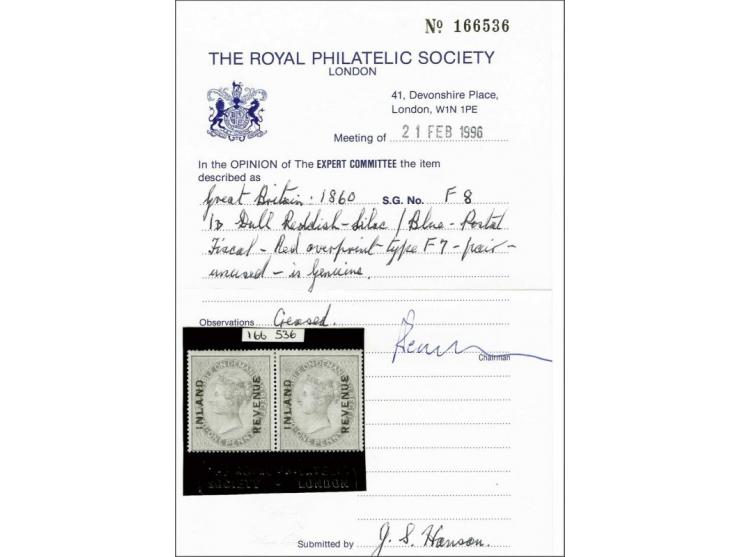 No 166536
THE ROYAL PHILATELIC SOCIETY
LONDON
41, Devonshire Place,
London, W1N 1PE
Meeting of 21 FEB 1996
In the OPINION of The EXPERT COMMITTEE the item
described as
Great Britain: 1860 S.G. No. F 8
1D Dull Reddish-Lilac / Blue - Postal
Fiscal - Red overprint - type F7 - pair -
unused - is Genuine.
Observations Creased.
166 536
Chairman
INLAND REVENUE INLAND REVENUE
ONE PENNY ONE PENNY
SOCIETY - LONDON
Submitted by J. S. Hanson.